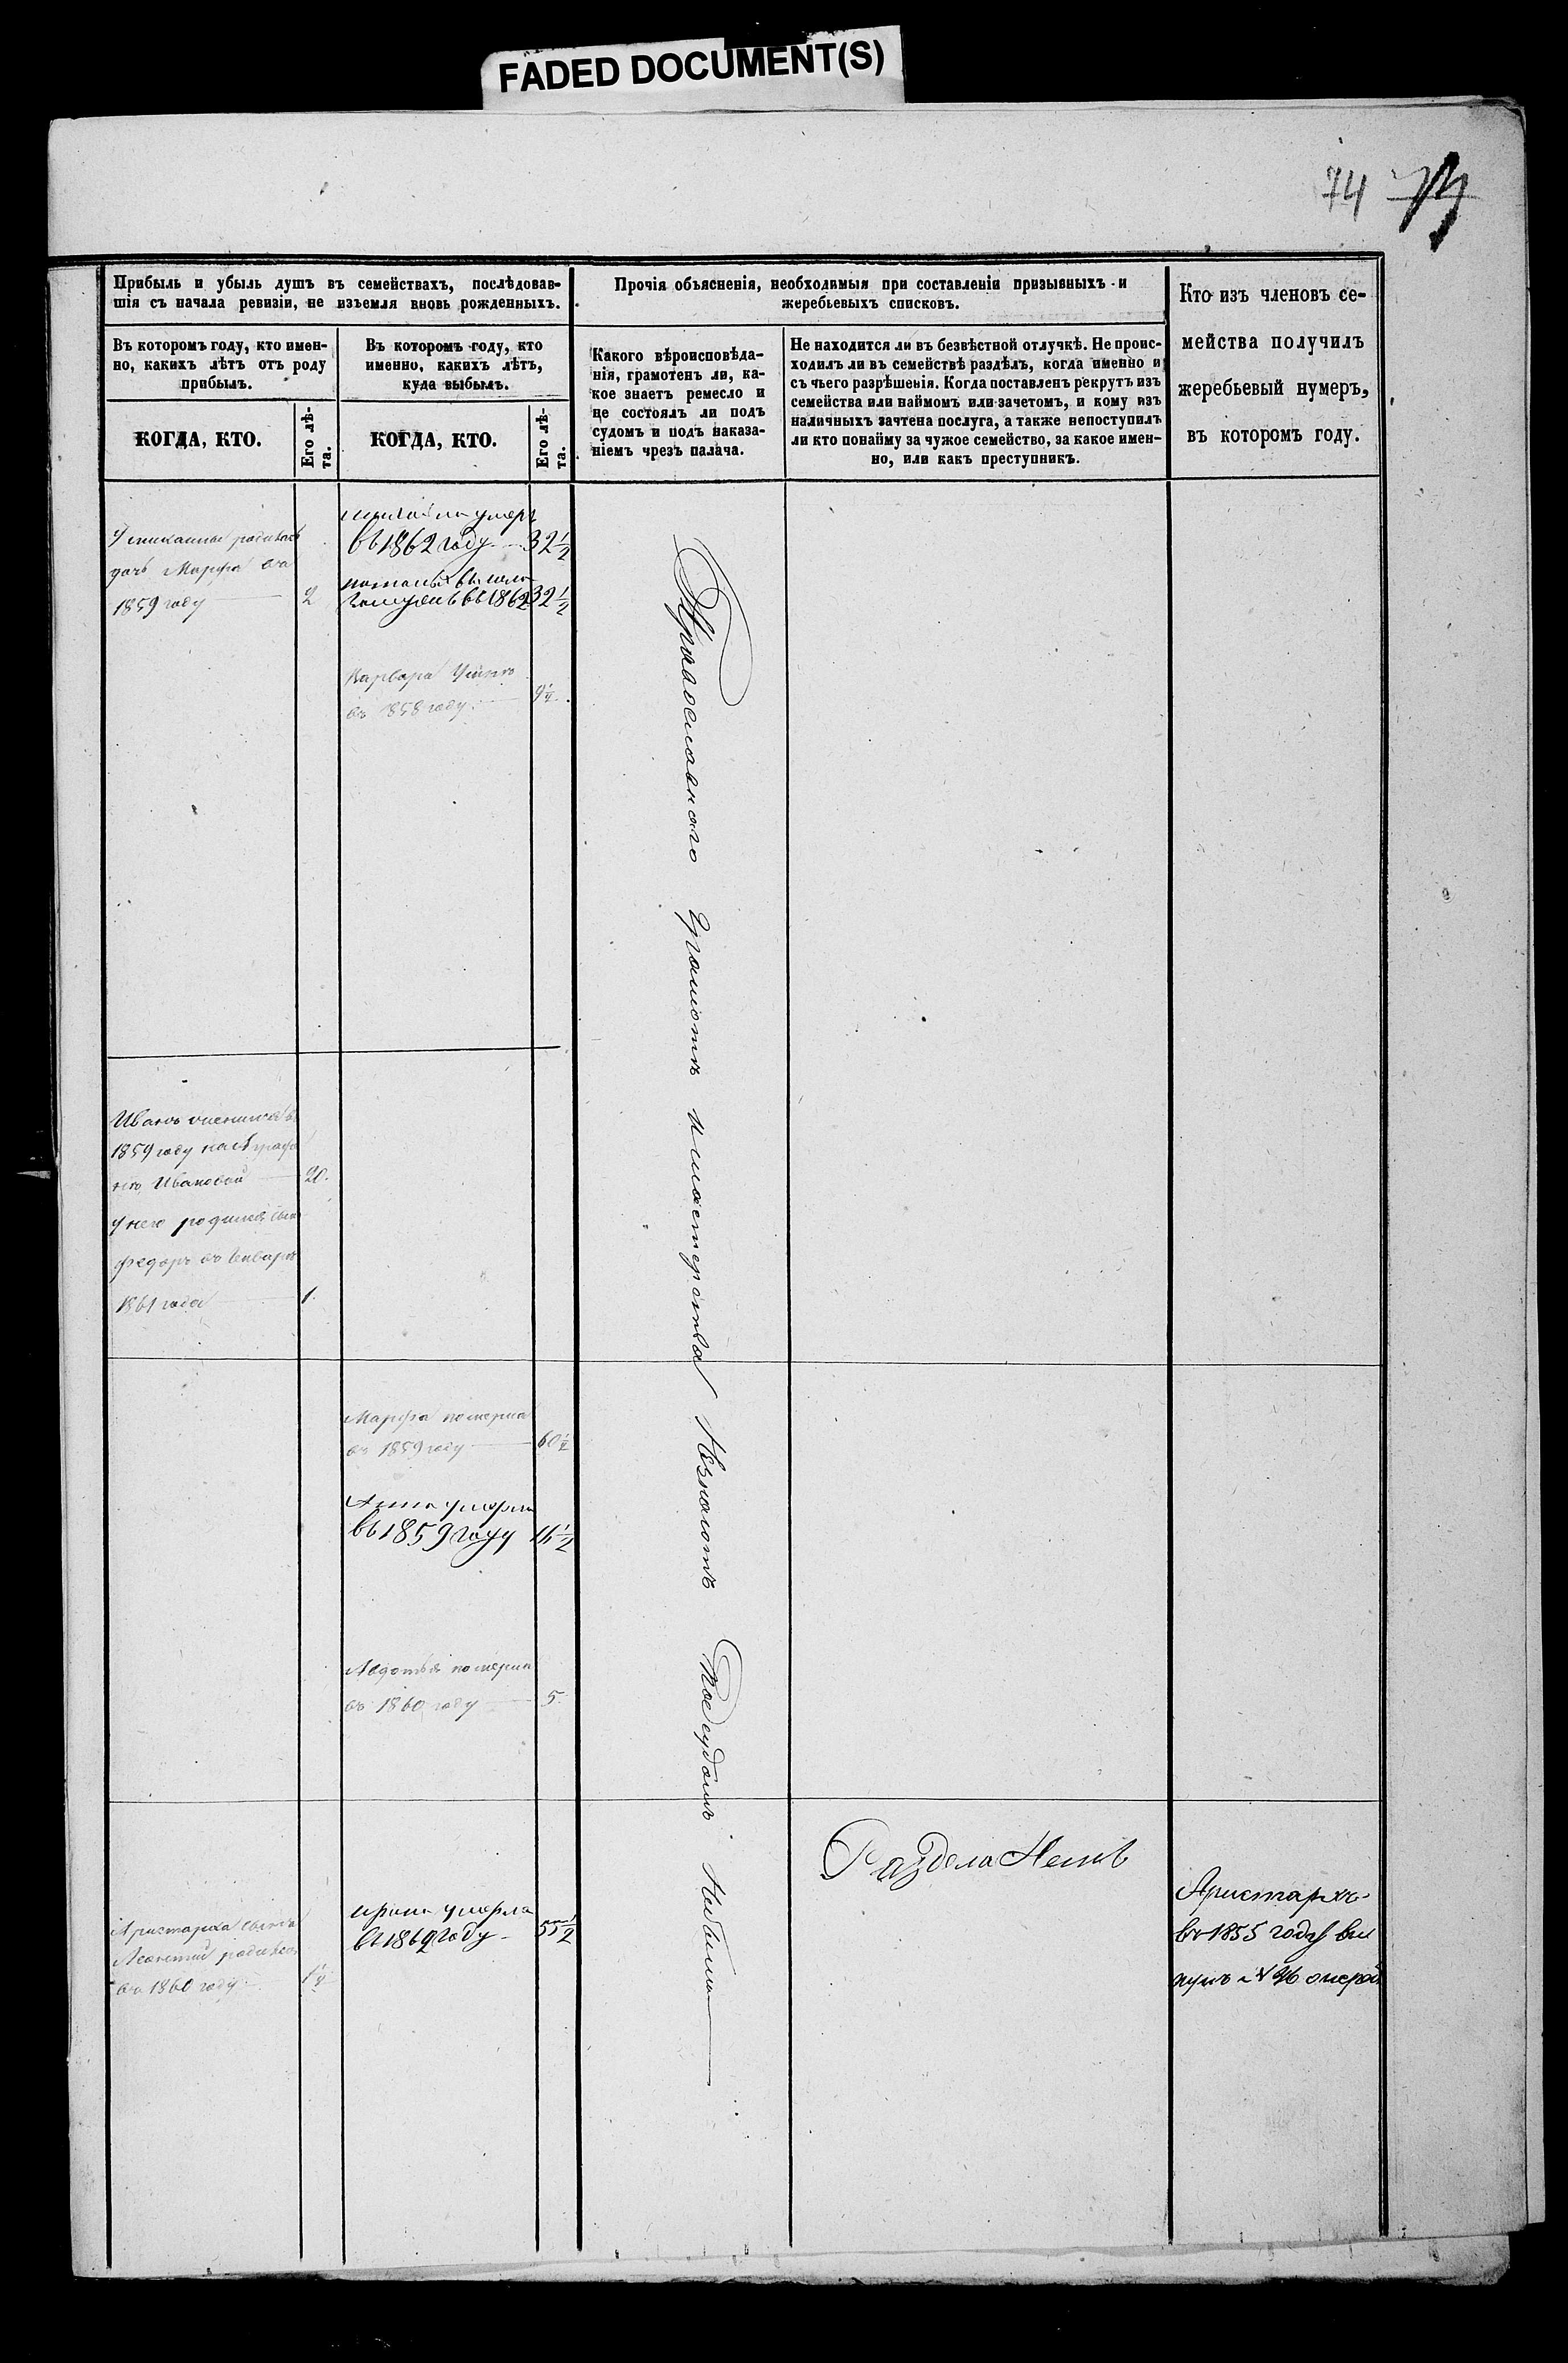 FADED DOCUMENT(S)
74
Прибыль и убыль душъ въ семействахъ, послѣдовав-
шія съ начала ревизіи, не изъемля вновь рожденныхъ.
Прочія объясненія, необходимыя при составленіи призывныхъ и
жеребьевыхъ списковъ.
Кто изъ членовъ се-
мейства получилъ
жеребьевый нумеръ,
въ которомъ году.
Въ которомъ году, кто имен-
но, какихъ лѣтъ отъ роду
прибылъ.
Въ которомъ году, кто
именно, какихъ лѣтъ,
куда выбылъ.
Какого вѣроисповѣда-
нія, грамотенъ ли, ка-
кое знаетъ ремесло и
не состоялъ ли подъ
судомъ и подъ наказа-
ніемъ чрезъ палача.
Не находится ли въ безвѣстной отлучкѣ. Не проис-
ходилъ ли въ семействѣ раздѣлъ, когда именно и
съ чьего разрѣшенія. Когда поставленъ рекрутъ изъ
семейства или наймомъ или зачетомъ, и кому изъ
наличныхъ зачтена послуга, а также непоступилъ
ли кто понайму за чужое семейство, за какое имен-
но, или какъ преступникъ.
КОГДА, КТО.
Его лѣ-
та.
КОГДА, КТО.
Его лѣ-
та.
родилась
дочь Марфа въ
1859 году 2
умеръ
въ 1862 году 32 1/2
въ 1862 32 1/2
Варвара
въ 1858 году
Иванъ женился въ
1859 году на
Ивановой 20.
у него родился сынъ
Федоръ въ Январѣ
1861 года 1.
Марфа померла
въ 1859 году 60 1/2
Анна умерла
въ 1859 году 16 1/2
Авдотья померла
въ 1860 году 5.
Аристарха сынъ
родился
въ 1860 году
ирина умерла
въ 1862 году 55 1/2
Православнаго Грамотѣ имастерства Незнаютъ Подсудомъ Небыли
Раздела Небыло
Аристархъ
въ 1855 году вы
нулъ № 96